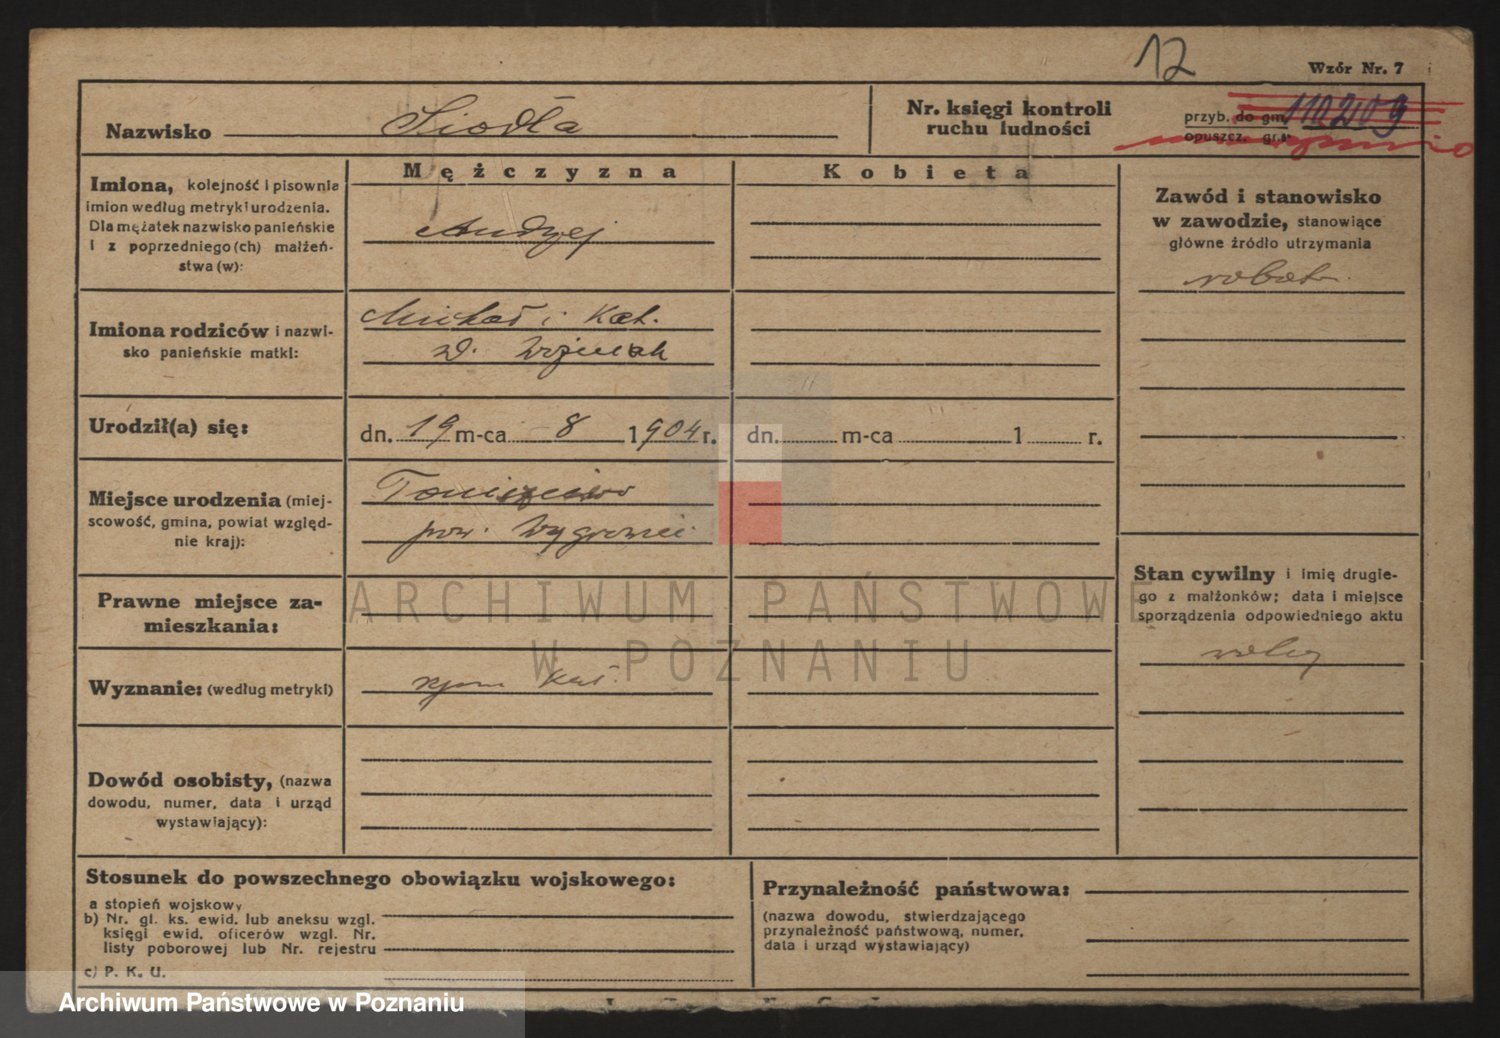 12
Wzór Nr. 7
Nazwisko Siodła
Nr. księgi kontroli
ruchu ludności
przyb. do gm. 110209
opuszcz. gr.
Mężczyzna
Kobieta
Imiona, kolejność i pisownia
imion według metryki urodzenia.
Dla mężatek nazwisko panieńskie
i z poprzedniego (ch) małżeń-
stwa (w):
Andrzej
Imiona rodziców i nazwi-
sko panieńskie matki:
Michał i Kat.
d. Woźniak
Urodził(a) się:
dn. 19 m-ca 8 1904 r.
dn. m-ca 1 r.
Miejsce urodzenia (miej-
scowość, gmina, powiat względ-
nie kraj):
Toniszewo
pow. Wągrowiec
Prawne miejsce za-
mieszkania:
Wyznanie: (według metryki)
rzym kat.
Dowód osobisty, (nazwa
dowodu, numer, data i urząd
wystawiający):
Zawód i stanowisko
w zawodzie, stanowiące
główne źródło utrzymania
robotn.
Stan cywilny i imię drugie-
go z małżonków; data i miejsce
sporządzenia odpowiedniego aktu
wolny
Stosunek do powszechnego obowiązku wojskowego:
a stopień wojskowy
b) Nr. gl. ks. ewid. lub aneksu wzgl.
księgi ewid. oficerów wzgl. Nr.
listy poborowej lub Nr. rejestru
c) P. K. U.
Przynależność państwowa:
(nazwa dowodu, stwierdzającego
przynależność państwową, numer,
data i urząd wystawiający)
ARCHIWUM PAŃSTWOWE
W POZNANIU
Archiwum Państwowe w Poznaniu